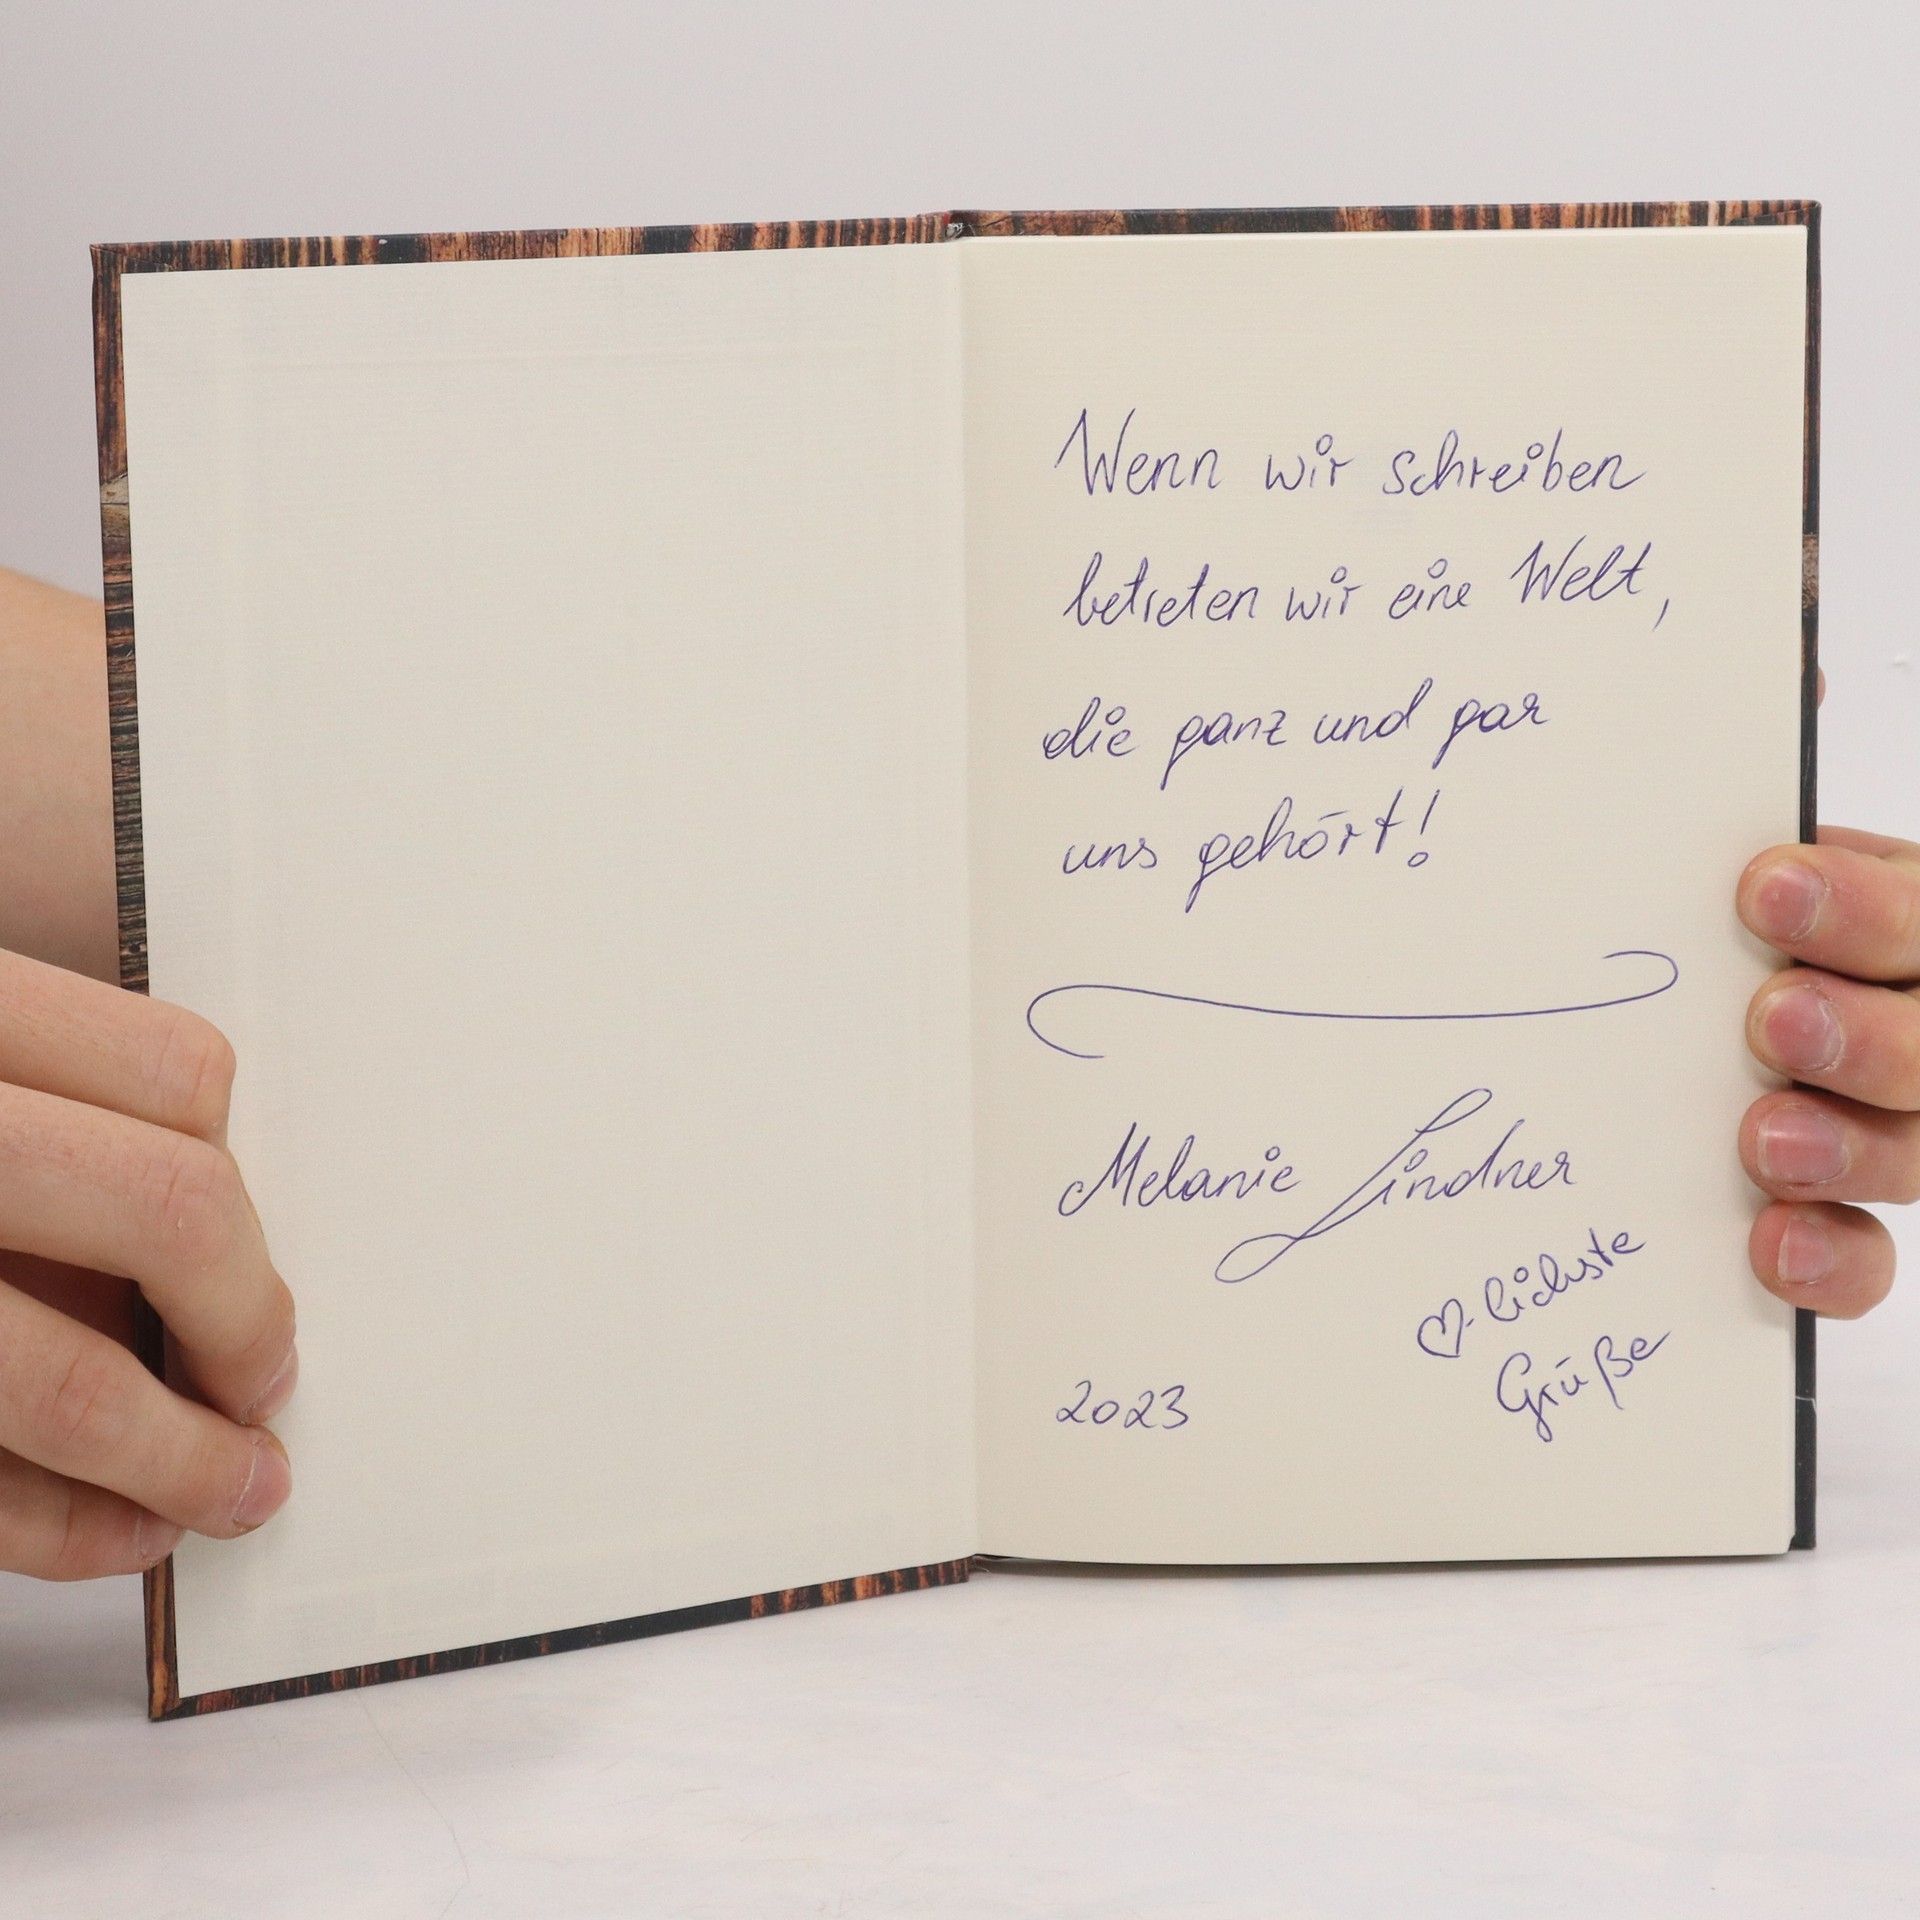 Wenn wir schreiben
betreten wir eine Welt,
die ganz und gar
uns gehört!
Melanie Lindner
♡-lichste
Grüße
2023